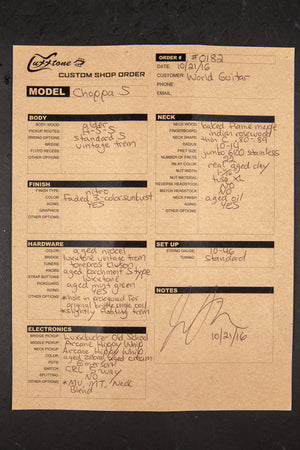 Luxxtone
CUSTOM SHOP ORDER
ORDER # #0182
DATE: 10/21/16
CUSTOMER: World Guitar
PHONE:
EMAIL:
MODEL Choppa S
BODY
BODY WOOD alder
PICKUP ROUTES H-S-S
WIRING OPTIONS standard S
BRIDGE vintage trem
FLOYD RECESS
OTHER OPTIONS
FINISH
FINISH TYPE nitro
COLOR Faded 3-color sunburst
AGING YES
GRAPHICS
OTHER OPTIONS
HARDWARE
COLOR aged nickel
BRIDGE luxxtone vintage trem
TUNERS tonepros kluson
KNOBS aged parchment S type
STRAP BUTTONS luxxtone
PICKGUARD aged mint green
AGING YES
OTHER OPTIONS *hole in pickguard for
original bridge single coil
*slightly floating trem
ELECTRONICS
BRIDGE PICKUP Luxxbucker Old School
MIDDLE PICKUP Arcane Hippy Whip
NECK PICKUP Arcane Hippy Whip
COLOR aged zebra, aged cream
POTS
SWITCH CRL 5 way
SPLITTING NO
OTHER OPTIONS *MV, MT, Neck
Blend
NECK
NECK WOOD baked flame maple
FINGERBOARD indian rosewood
NECK SHAPE thin C .80-.89
RADIUS 10-16
FRET SIZE jumbo 6100 stainless
NUMBER OF FRETS 22
INLAY real aged clay
NUT WIDTH
NUT MATERIAL tusq XL
REVERSE HEADSTOCK NO
MATCH HEADSTOCK NO
NECK FINISH aged oil
AGING YES
OTHER OPTIONS
SET UP
STRING GAUGE 10-46
TUNING Standard
NOTES
10/21/16